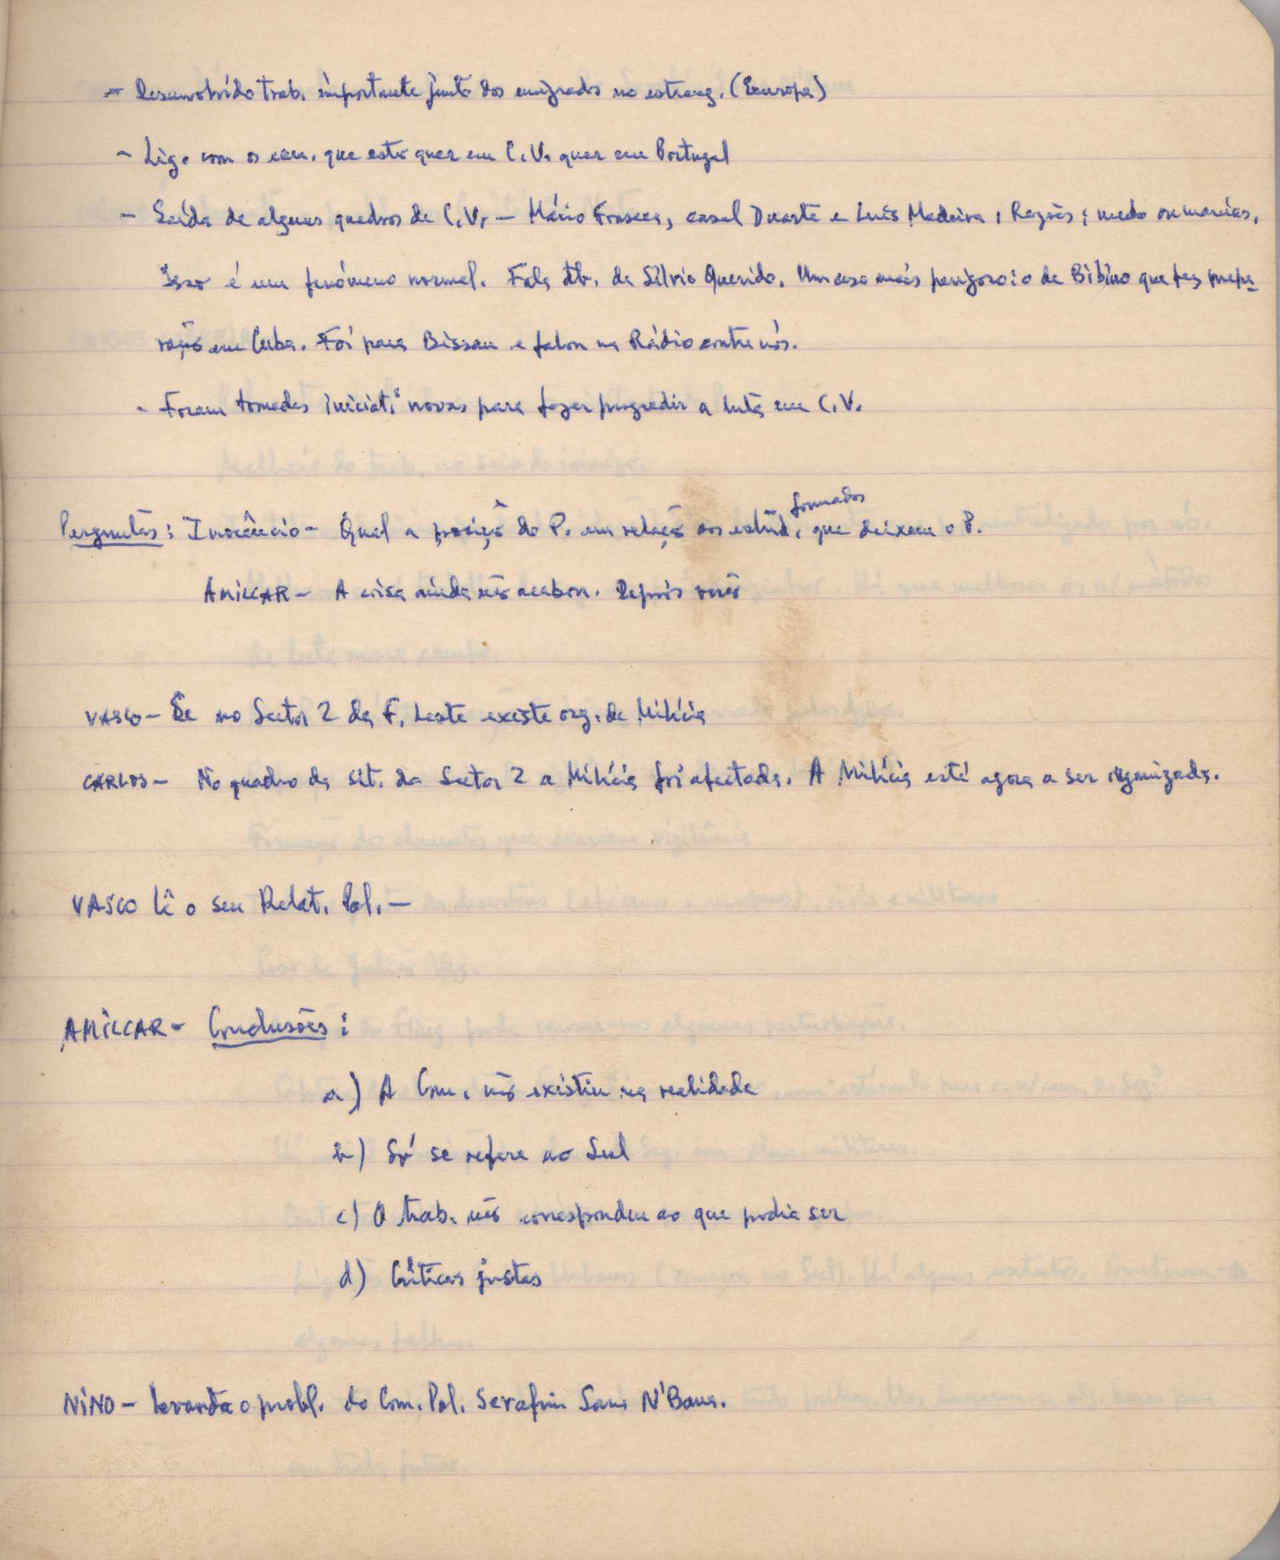 - Desenvolvido trab. importante junto dos emigrados no estrang. (Europa)
- Lig. com os cam. que estão quer em C.V. quer em Portugal
- Saída de alguns quadros de C.V. - Mário Fonseca, casal Duarte e Luís Madeira. Razões: medo ou manias.
Isso é um fenómeno normal. Fala tb. de Sílvio Querido. Um caso mais perigoso: o de Bibino que fez prepa-
ração em Cuba. Foi para Bissau e falou na Rádio contra nós.
- Foram tomadas iniciat.s novas para fazer progredir a luta em C.V.
Perguntas: Inocêncio - Qual a posição do P. em relação aos estud. formados que deixam o P.
AMILCAR - A coisa ainda não acabou. Depois verão
VASCO - Se no Sector 2 da F. Leste existe org. de Milícia
CARLOS - No quadro da sit. do Sector 2 a Milícia foi afectada. A Milícia está agora a ser organizada.
VASCO lê o seu Relat. Pol. -
AMILCAR - Conclusões:
a) A Com. não existiu na realidade
b) Só se refere ao Sul
c) O trab. não correspondeu ao que podia ser
d) Críticas justas
NINO - levanta o probl. do Com. Pol. Serafim N'Bana.